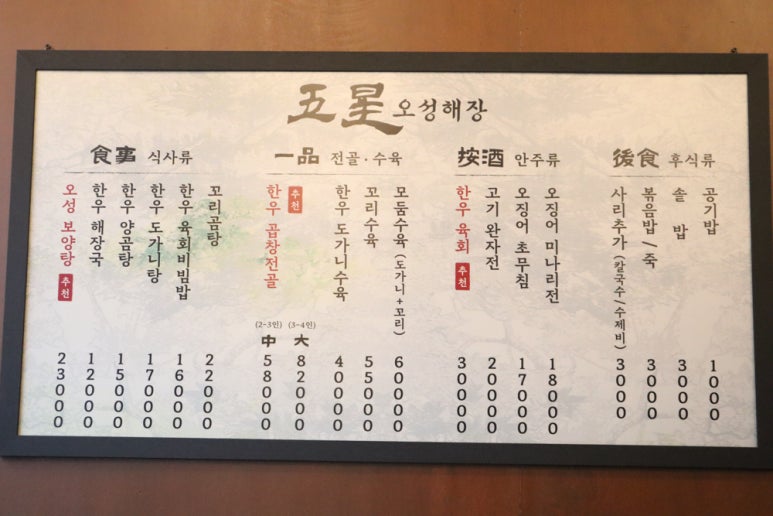 五星 오성해장
食事 식사류
오성 보양탕 추천 23000
한우 해장국 12000
한우 양곰탕 15000
한우 도가니탕 17000
한우 육회비빔밥 16000
꼬리곰탕 22000
一品 전골·수육
한우 곱창전골 추천
(2-3인) 中 58000
(3-4인) 大 82000
한우 도가니수육 40000
꼬리수육 55000
모둠수육(도가니+꼬리) 60000
按酒 안주류
한우 육회 추천 30000
고기 완자전 20000
오징어 초무침 17000
오징어 미나리전 18000
後食 후식류
사리추가(칼국수/수제비) 3000
볶음밥/죽 3000
솥밥 3000
공기밥 1000